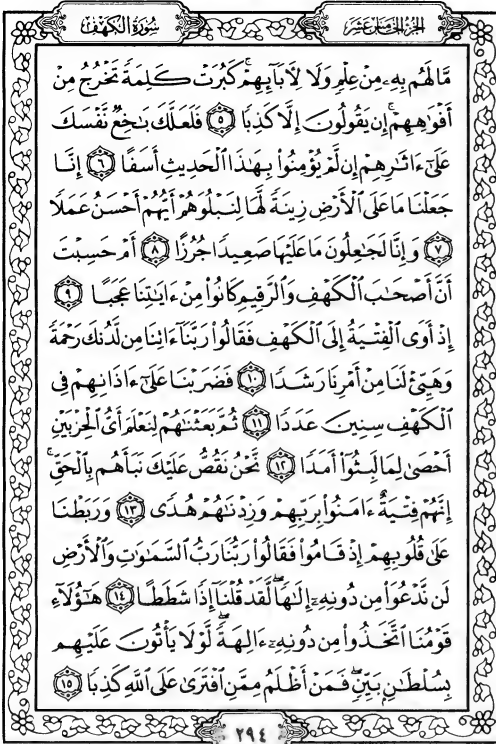 الجزء الخامس عشر
سورة الكهف
مَّا لَهُم بِهِۦ مِنْ عِلْمٍ وَلَا لِءَابَآئِهِمْ ۚ كَبُرَتْ كَلِمَةً تَخْرُجُ مِنْ
أَفْوَٰهِهِمْ ۚ إِن يَقُولُونَ إِلَّا كَذِبًا ۝٥ فَلَعَلَّكَ بَٰخِعٌ نَّفْسَكَ
عَلَىٰٓ ءَاثَٰرِهِمْ إِن لَّمْ يُؤْمِنُوا۟ بِهَٰذَا ٱلْحَدِيثِ أَسَفًا ۝٦ إِنَّا
جَعَلْنَا مَا عَلَى ٱلْأَرْضِ زِينَةً لَّهَا لِنَبْلُوَهُمْ أَيُّهُمْ أَحْسَنُ عَمَلًا
۝٧ وَإِنَّا لَجَٰعِلُونَ مَا عَلَيْهَا صَعِيدًا جُرُزًا ۝٨ أَمْ حَسِبْتَ
أَنَّ أَصْحَٰبَ ٱلْكَهْفِ وَٱلرَّقِيمِ كَانُوا۟ مِنْ ءَايَٰتِنَا عَجَبًا ۝٩
إِذْ أَوَى ٱلْفِتْيَةُ إِلَى ٱلْكَهْفِ فَقَالُوا۟ رَبَّنَآ ءَاتِنَا مِن لَّدُنكَ رَحْمَةً
وَهَيِّئْ لَنَا مِنْ أَمْرِنَا رَشَدًا ۝١٠ فَضَرَبْنَا عَلَىٰٓ ءَاذَانِهِمْ فِى
ٱلْكَهْفِ سِنِينَ عَدَدًا ۝١١ ثُمَّ بَعَثْنَٰهُمْ لِنَعْلَمَ أَىُّ ٱلْحِزْبَيْنِ
أَحْصَىٰ لِمَا لَبِثُوٓا۟ أَمَدًا ۝١٢ نَّحْنُ نَقُصُّ عَلَيْكَ نَبَأَهُم بِٱلْحَقِّ ۚ
إِنَّهُمْ فِتْيَةٌ ءَامَنُوا۟ بِرَبِّهِمْ وَزِدْنَٰهُمْ هُدًى ۝١٣ وَرَبَطْنَا
عَلَىٰ قُلُوبِهِمْ إِذْ قَامُوا۟ فَقَالُوا۟ رَبُّنَا رَبُّ ٱلسَّمَٰوَٰتِ وَٱلْأَرْضِ
لَن نَّدْعُوَا۟ مِن دُونِهِۦٓ إِلَٰهًا ۖ لَّقَدْ قُلْنَآ إِذًا شَطَطًا ۝١٤ هَٰٓؤُلَآءِ
قَوْمُنَا ٱتَّخَذُوا۟ مِن دُونِهِۦٓ ءَالِهَةً ۖ لَّوْلَا يَأْتُونَ عَلَيْهِم
بِسُلْطَٰنٍۭ بَيِّنٍ ۖ فَمَنْ أَظْلَمُ مِمَّنِ ٱفْتَرَىٰ عَلَى ٱللَّهِ كَذِبًا ۝١٥
٢٩٤